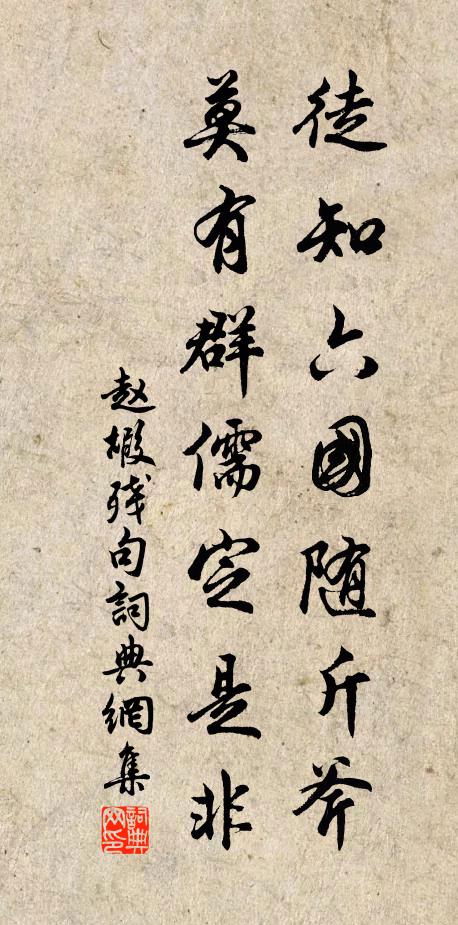 徒知六國随斤斧
莫有群儒定是非
赵嘏残句詞典網集
詞典网印